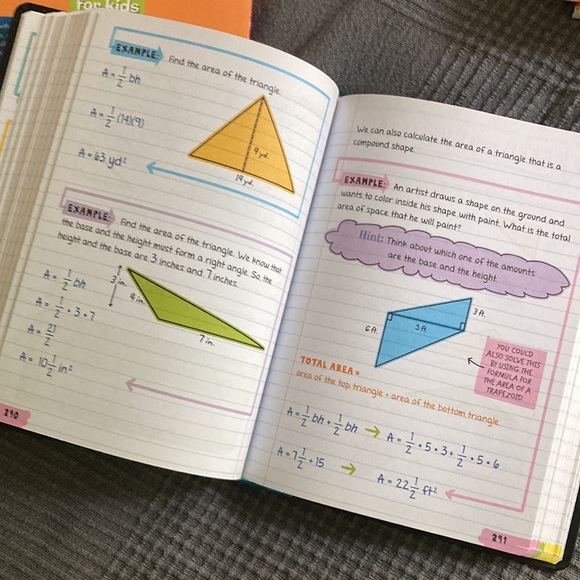 for kids
EXAMPLE: Find the area of the triangle.
A = 1/2 bh
A = 1/2 (14)(9)
A = 63 yd²
9 yd.
14 yd.
EXAMPLE: Find the area of the triangle. We know that
the base and the height must form a right angle. So, the
height and the base are 3 inches and 7 inches.
A = 1/2 bh
A = 1/2 · 3 · 7
A = 21/2
A = 10 1/2 in²
3 in.
4 in.
7 in.
290
We can also calculate the area of a triangle that is a
compound shape.
EXAMPLE: An artist draws a shape on the ground and
wants to color inside his shape with paint. What is the total
area of space that he will paint?
Hint: Think about which one of the amounts
are the base and the height.
3 ft.
6 ft.
5 ft.
YOU COULD
ALSO SOLVE THIS
BY USING THE
FORMULA FOR
THE AREA OF A
TRAPEZOID.
TOTAL AREA =
area of the top triangle + area of the bottom triangle
A = 1/2 bh + 1/2 bh → A = 1/2 · 5 · 3 + 1/2 · 5 · 6
A = 7 1/2 + 15 → A = 22 1/2 ft²
291